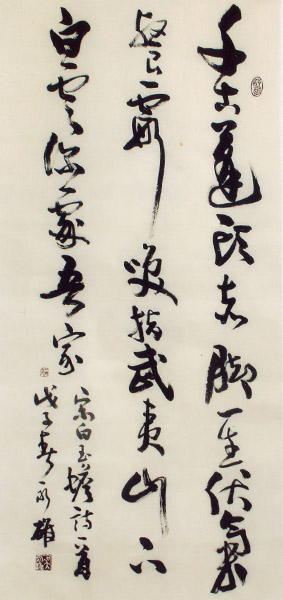 千古蓬頭赤脚一生伏氣
餐霞笑指武夷山下
白雲深處吾家
宋白玉蟾詩一首
戊子春永雄